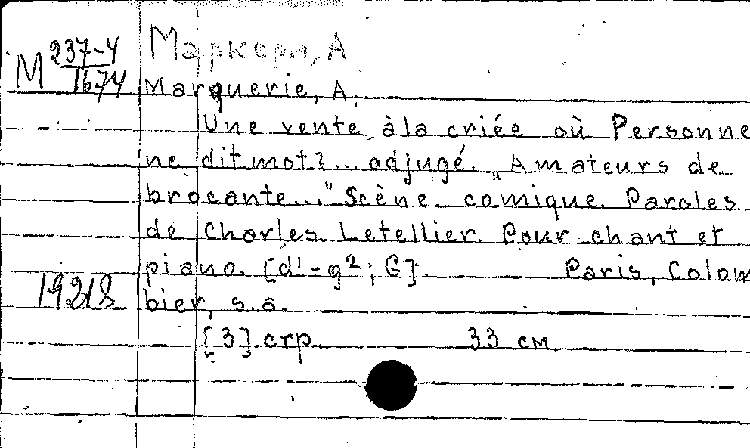 М 237-4
1674
Маркери, А
Marquerie, A.
Une vente à la criée où Personne
ne dit mot?... adjugé. "Amateurs de
brocante..." Scène comique. Paroles
de Charles Letellier. Pour chant et
piano. [d¹-g²; G] Paris, Colom
19218
bier, s.a.
[3] стр 33 см